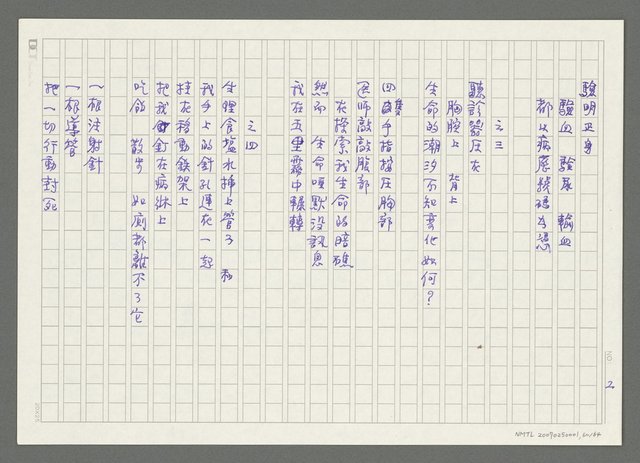 驗明正身
驗血 驗尿 輸血
都以病歷號碼為憑
之三
聽診器壓在
胸膛上 背上
生命的潮汐不知變化如何？
四隻手指擋壓胸部
醫師敲敲腹部
在探索我生命的暗礁
然而 生命喑默沒訊息
我在五里霧中輾轉
之四
生理食鹽水插上管子 和
我手上的針孔連在一起
挂在移動鐵架上
把我釘在病牀上
吃飯 散步 如廁都離不了它
一根注射針
一根導管
把一切行動封死
NO 2
20X25
NMTL 20090250001, 60/64